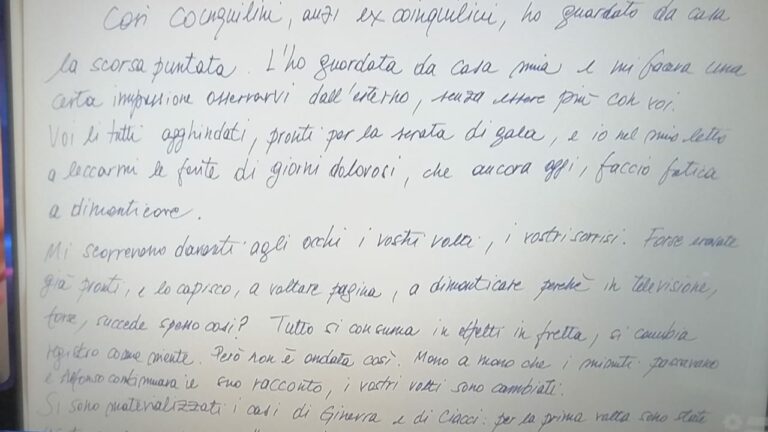 Cari coinquilini, anzi ex coinquilini, ho guardato da casa
la scorsa puntata. L'ho guardata da casa mia e mi faceva una
certa impressione osservarvi dall'esterno, senza essere più con voi.
Voi lì tutti agghindati, pronti per la serata di gala, e io nel mio letto
a leccarmi le ferite di giorni dolorosi, che ancora oggi, faccio fatica
a dimenticare.
Mi scorrevano davanti agli occhi i vostri volti, i vostri sorrisi. Forse eravate
già pronti, e lo capisco, a voltare pagina, a dimenticare perché in televisione,
forse, succede spesso così? Tutto si consuma in effetti in fretta, si cambia
registro come niente. Però non è andata così. Mano a mano che i minuti passavano
e Alfonso continuava il suo racconto, i vostri volti sono cambiati.
Si sono materializzati i casi di Ginevra e di Ciacci: per la prima volta sono state